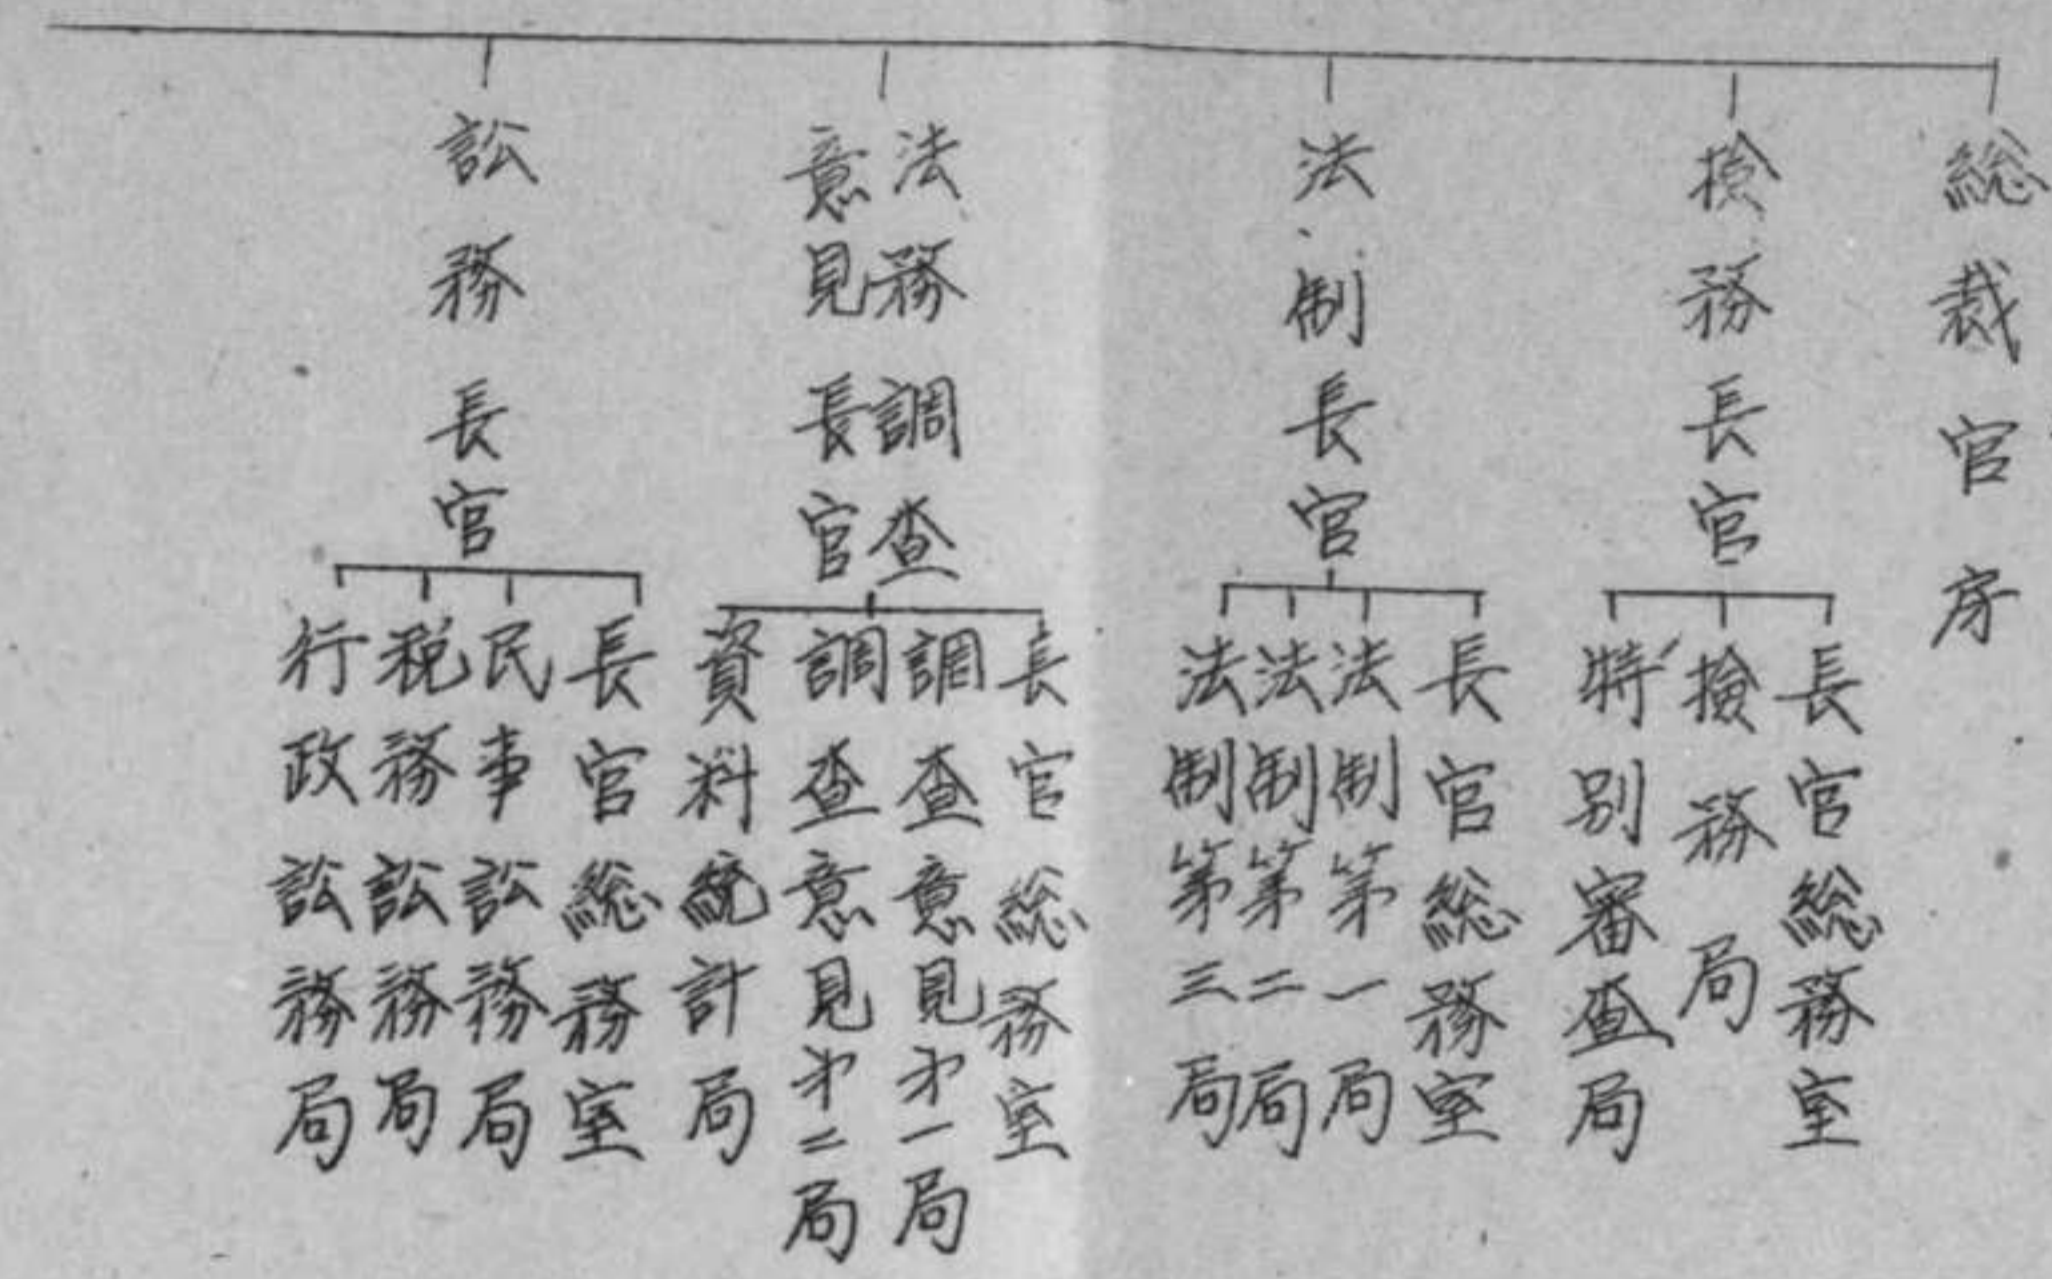 総裁官房
検務長官
長官総務室
検務局
特別審査局
法制長官
長官総務室
法制第一局
法制第二局
法制第三局
法務調査
意見長官
長官総務室
調査意見才一局
調査意見才二局
資料統計局
訟務長官
長官総務室
民事訟務局
税務訟務局
行政訟務局